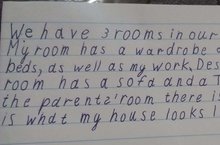 We have 3 rooms in our
My room has a wardrobe
beds, as well as my work. Des
room has a sofa and a T
the parents' room there i
is what my house looks l